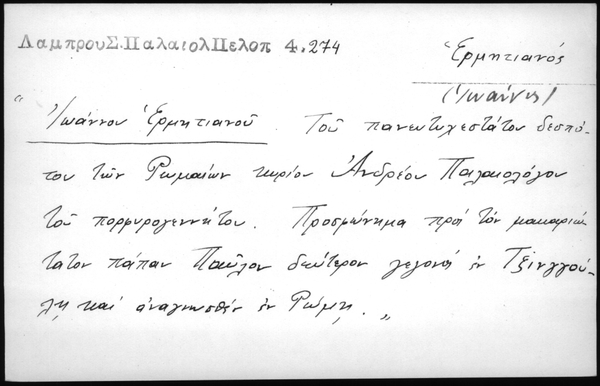 ΛαμπρουΣ.ΠαλαιολΠελοπ 4.274
Ἑρμητιανός
(Ἰωάννης)
"Ἰωάννου Ἑρμητιανοῦ. Τοῦ πανευτυχεστάτου δεσπό-
του τῶν Ῥωμαίων κυρίου Ἀνδρέου Παλαιολόγου
τοῦ πορφυρογεννήτου. Προσφώνημα πρὸς τὸν μακαριώ-
τατον πάπαν Παῦλον δεύτερον γεγονὸς ἐν Τζινγγού-
λῃ καὶ ἀναγνωσθὲν ἐν Ῥώμῃ."